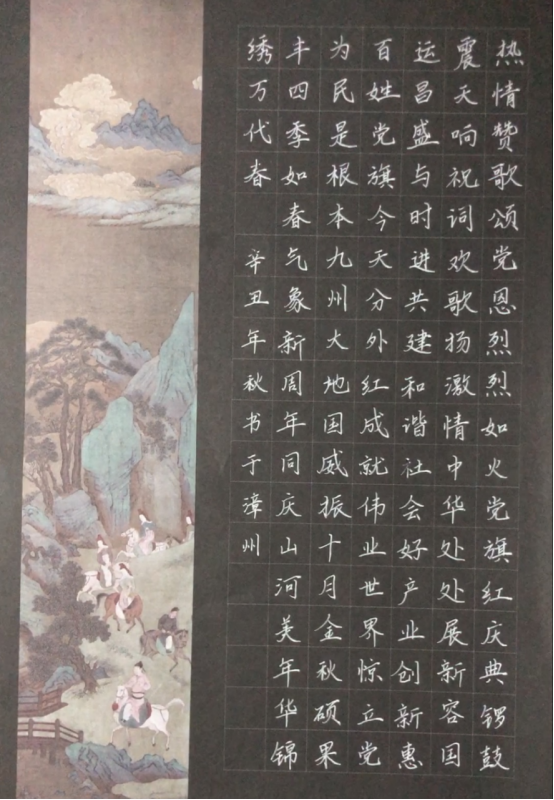 热情赞歌颂党恩烈烈如火党旗红庆典锣鼓
震天响祝词欢歌扬激情中华处处展新容国
运昌盛与时进共建和谐社会好产业创新惠
百姓党旗今天分外红成就伟业世界惊立党
为民是根本九州大地国威振十月金秋硕果
丰四季如春气象新周年同庆山河美年华锦
绣万代春
辛丑年秋书于漳州